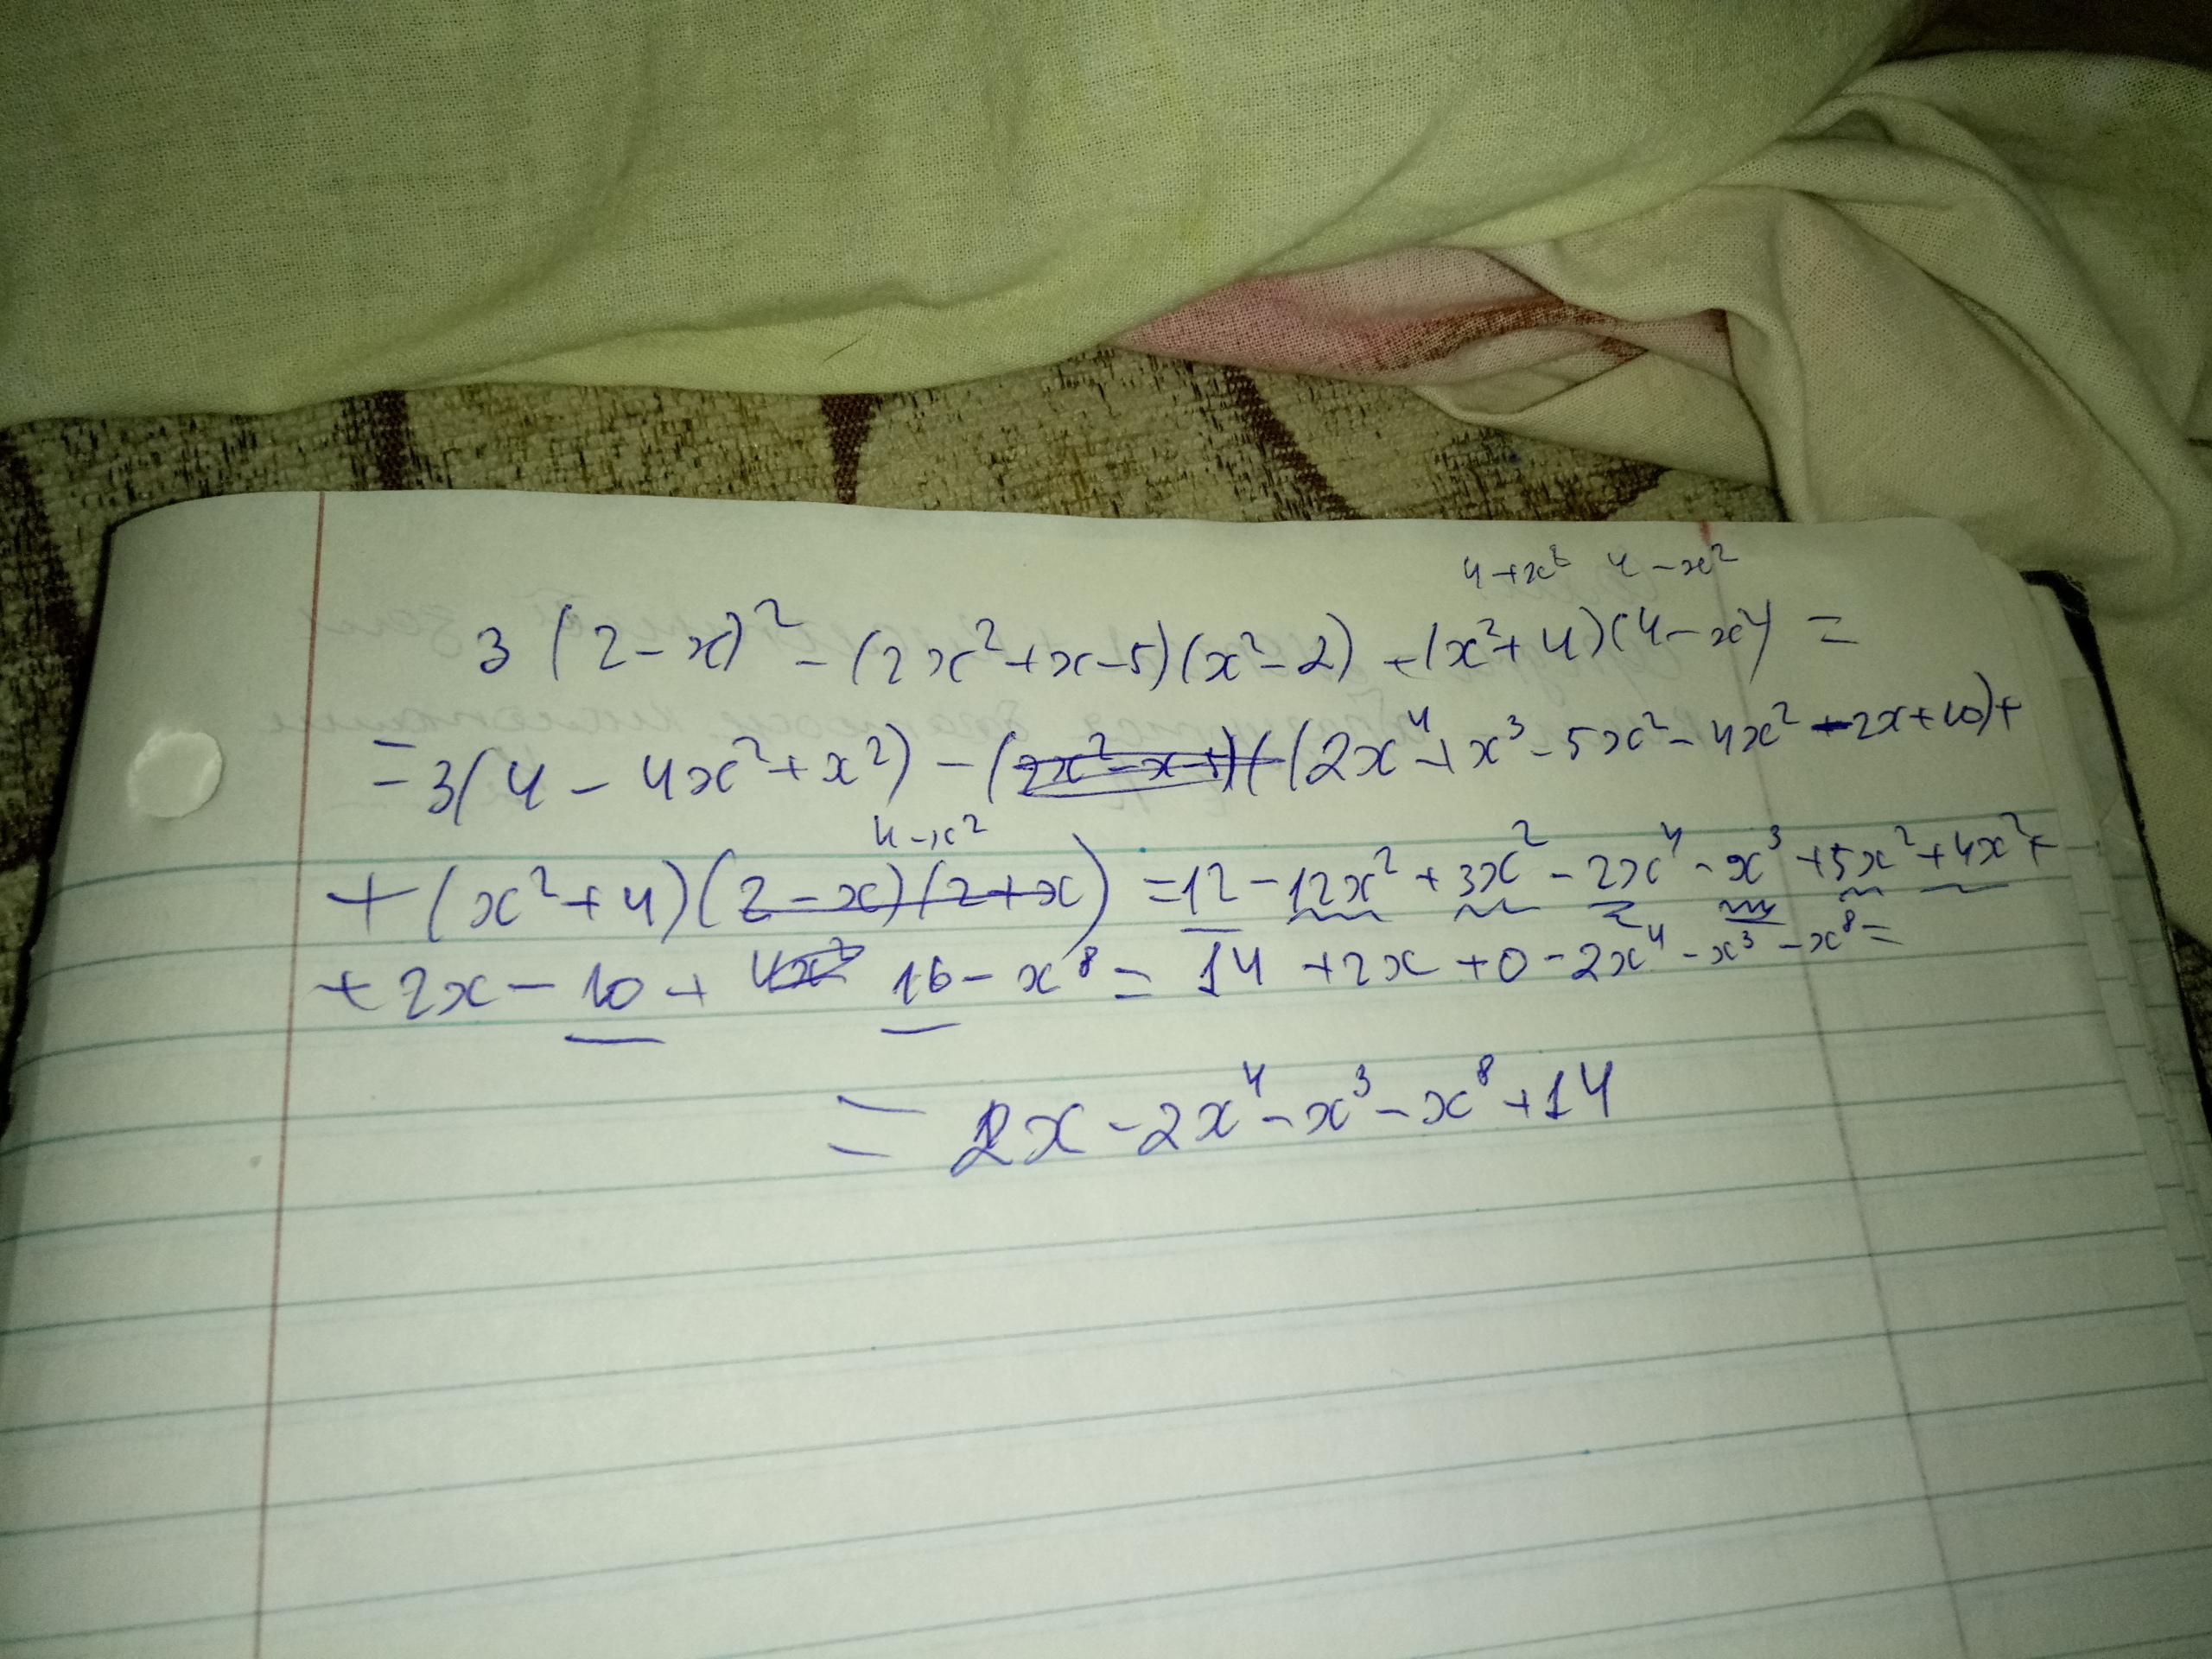 4+x² 4-x²
3(2-x)² - (2x²+x-5)(x²-2) + (x²+4)(4-x²) =
= 3(4 - 4x² + x²) - (2x⁴ + x³ - 5x² - 4x² - 2x + 10) +
4-x²
+ (x²+4)(2-x)(2+x) = 12 - 12x² + 3x² - 2x⁴ - x³ + 5x² + 4x² +
+ 2x - 10 + 16 - x⁸ = 14 + 2x + 0 - 2x⁴ - x³ - x⁸ =
= 2x - 2x⁴ - x³ - x⁸ + 14